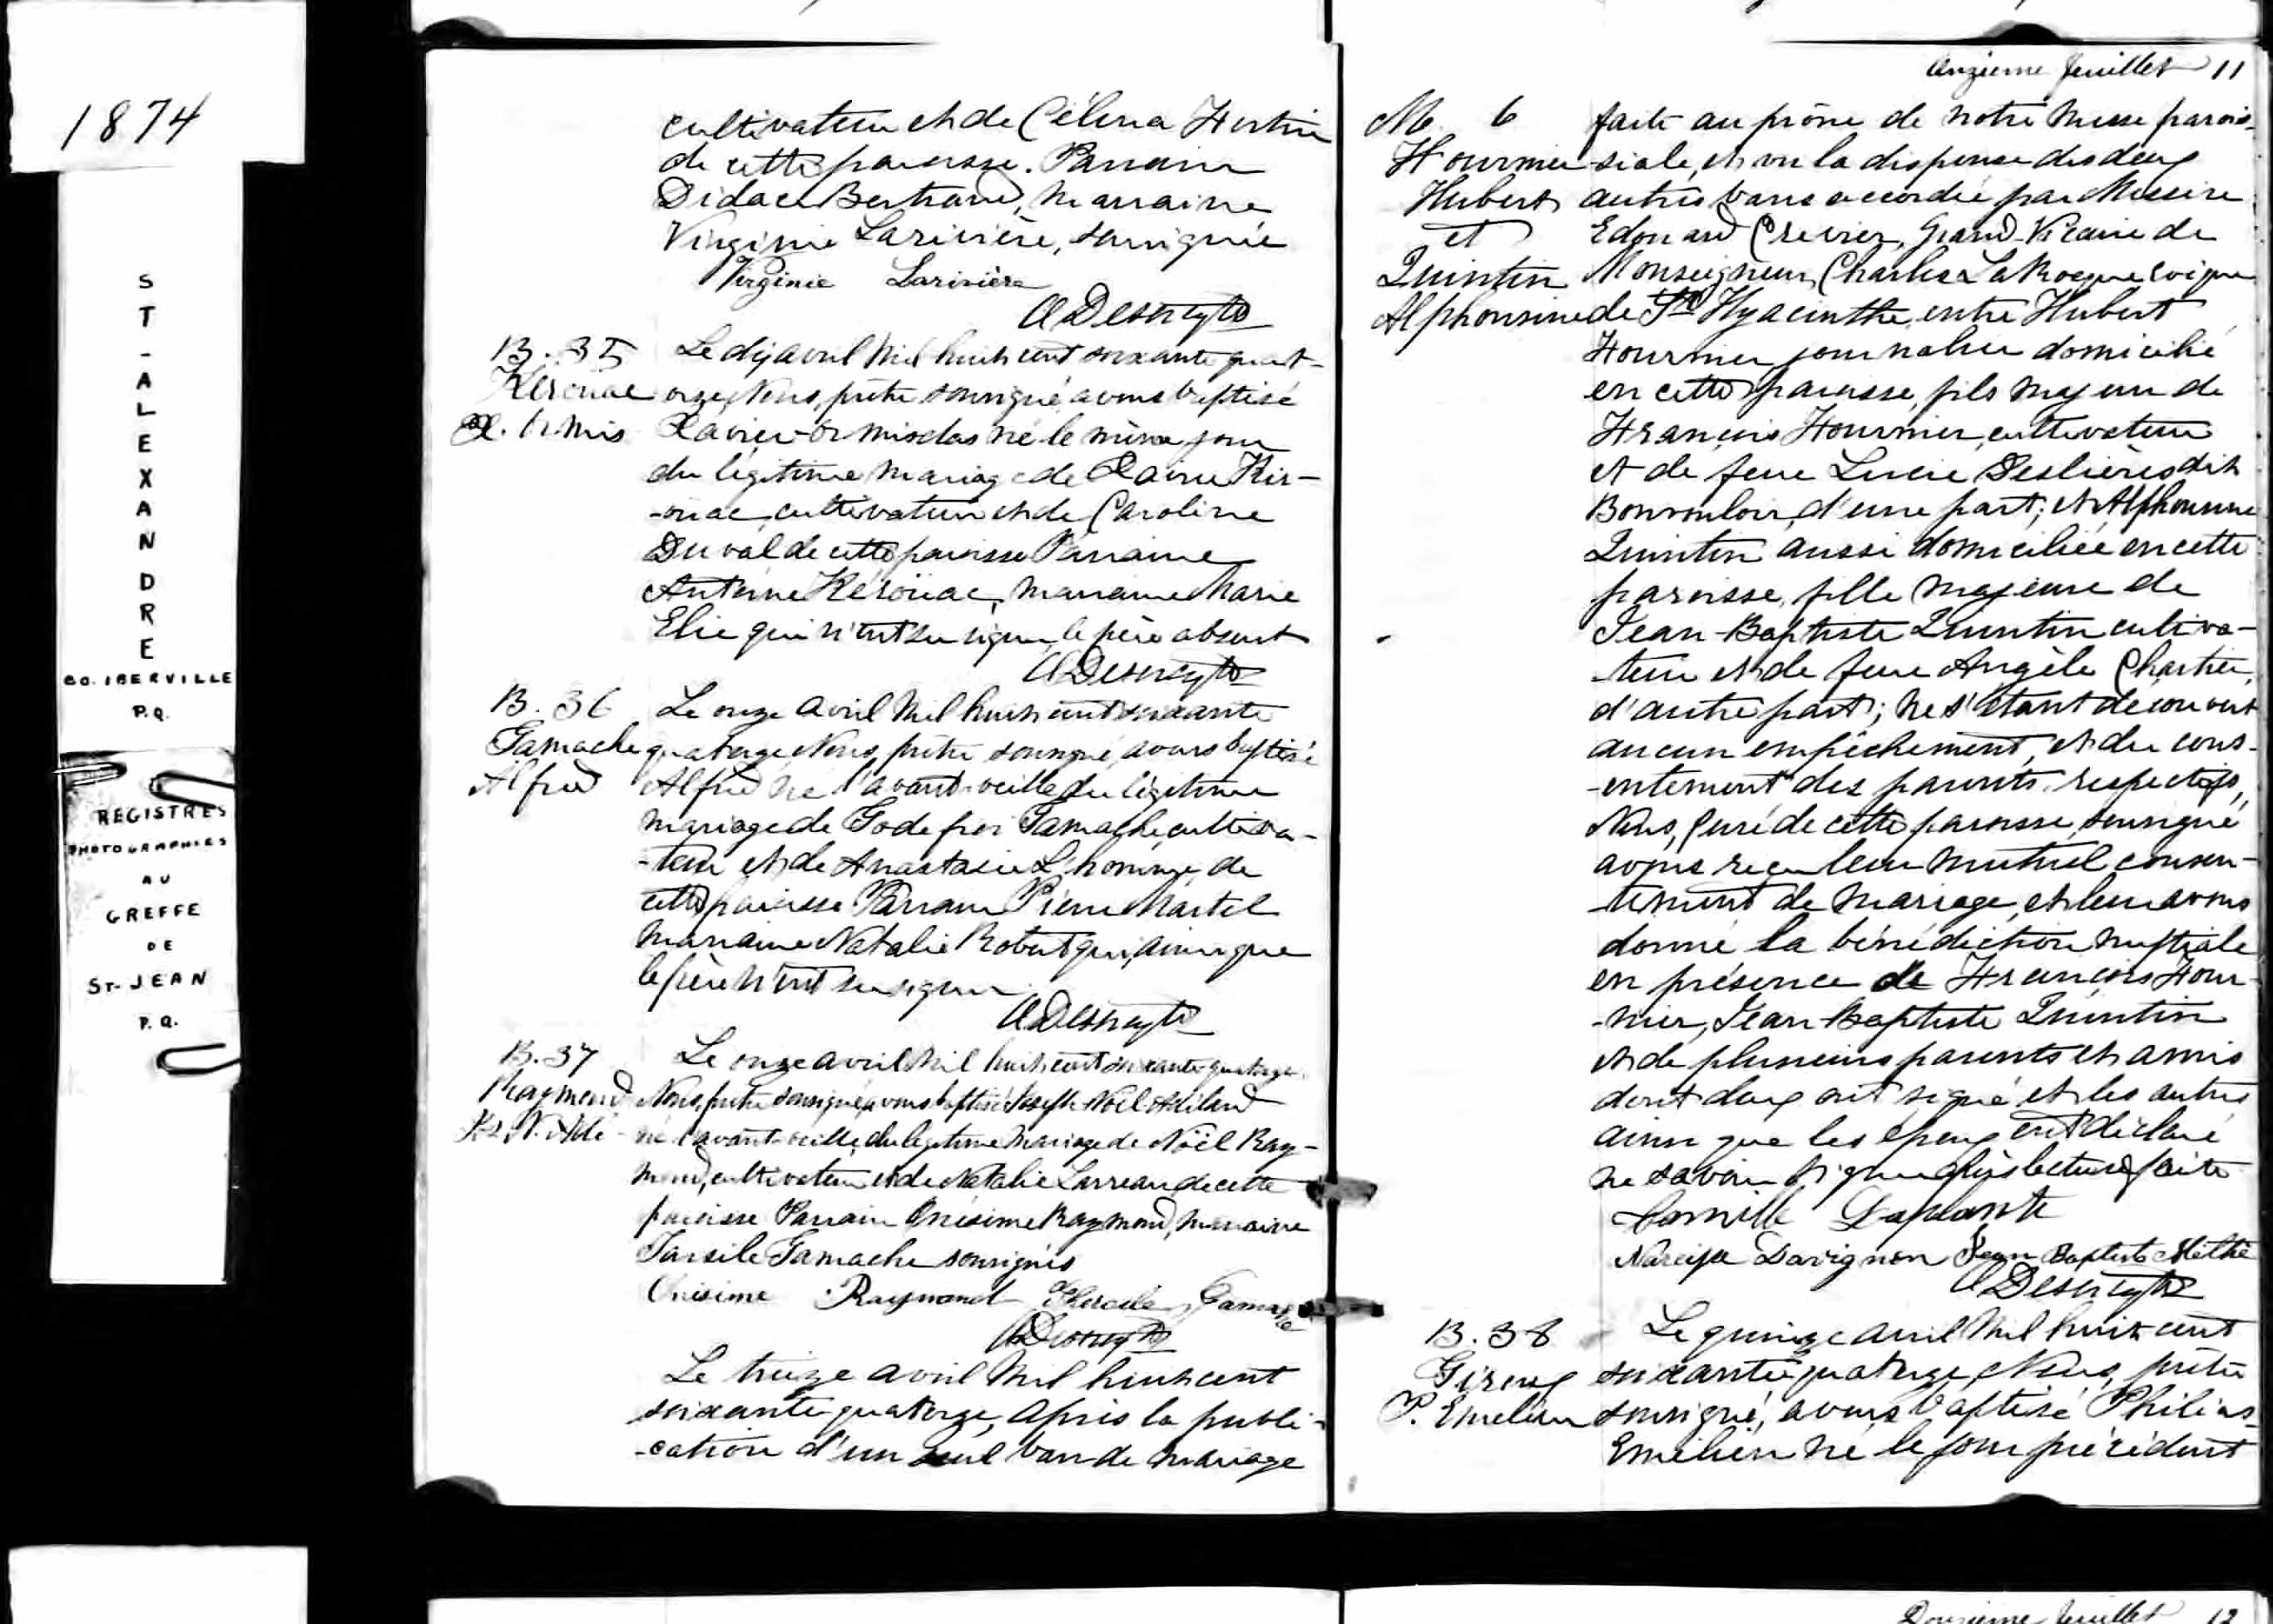 1874
ST-ALEXANDRE
CO. IBERVILLE
P.Q.
REGISTRES
PHOTOGRAPHIES
AU
GREFFE
DE
ST-JEAN
P.Q.
cultivateur et de Célina Fortin
de cette paroisse. Parrain
Didace Bertrand, marraine
Virginie Larivière, soussignée
Virginie Larivière
B. 35
Kérouac
X. Ormis
Le dix avril mil huit cent soixante quat-
orze, Nous, prêtre soussigné, avons baptisé
Xavier-Ormisdas né le même jour
du légitime mariage de Xavier Kér-
-ouac, cultivateur et de Caroline
Duval de cette paroisse Parrain
Antoine Kérouac, marraine Marie
Elie qui n'ont su signer, le père absent
B. 36
Gamache
Alfred
Le onze avril mil huit cent soixante
quatorze, Nous, prêtre soussigné, avons baptisé
Alfred né l'avant-veille du légitime
mariage de Godefroi Gamache, cultiva-
-teur et de Anastasie L'homme, de
cette paroisse. Parrain Pierre Martel
marraine Natalie Robert qui, ainsi que
le père n'ont su signer.
B. 37
Raymond
Le onze avril mil huit cent soixante quatorze,
Nous, prêtre soussigné, avons baptisé Joseph Noël Adélard
né l'avant-veille, du légitime mariage de Noël Ray-
mond, cultivateur et de Natalie Larreau de cette
paroisse Parrain Onésime Raymond, marraine
Tarsile Gamache soussignés
Onésime Raymond Gamache
Le treize avril mil huit cent
soixante-quatorze, après la publi-
-cation d'un seul ban de mariage
Onzième feuillet 11
M. 6
Fournier
Hubert
et
Quintin
Alphonsine
faite au prône de notre messe parois-
-siale, et vu la dispense des deux
autres bans accordée par Messire
Edouard Crevier, Grand-Vicaire de
Monseigneur Charles LaRocque évêque
de St Hyacinthe, entre Hubert
Fournier journalier domicilié
en cette paroisse, fils majeur de
François Fournier, cultivateur
et de feue Lucie Deslières dit
Bonvouloir, d'une part; et Alphonsine
Quintin aussi domiciliée en cette
paroisse, fille majeure de
Jean-Baptiste Quintin cultiva-
-teur et de feue Angèle Chartier,
d'autre part; ne s'étant découvert
aucun empêchement, et du cons-
-entement des parents respectifs,
Nous, Curé de cette paroisse, soussigné
avons reçu leur mutuel consen-
-tement de mariage, et leur avons
donné la bénédiction nuptiale
en présence de François Four-
-nier, Jean-Baptiste Quintin
et de plusieurs parents et amis
dont deux ont signé et les autres
ainsi que les époux ont déclaré
ne savoir signer après lecture faite
Camille Laplante
Narcisse Davignon Jean Baptiste Méthé
B. 38
Giroux
P. Emelien
Le quinze avril mil huit cent
soixante-quatorze, Nous, prêtre
soussigné, avons baptisé Philias-
Emélien né le jour précédent
Douzième feuillet 12